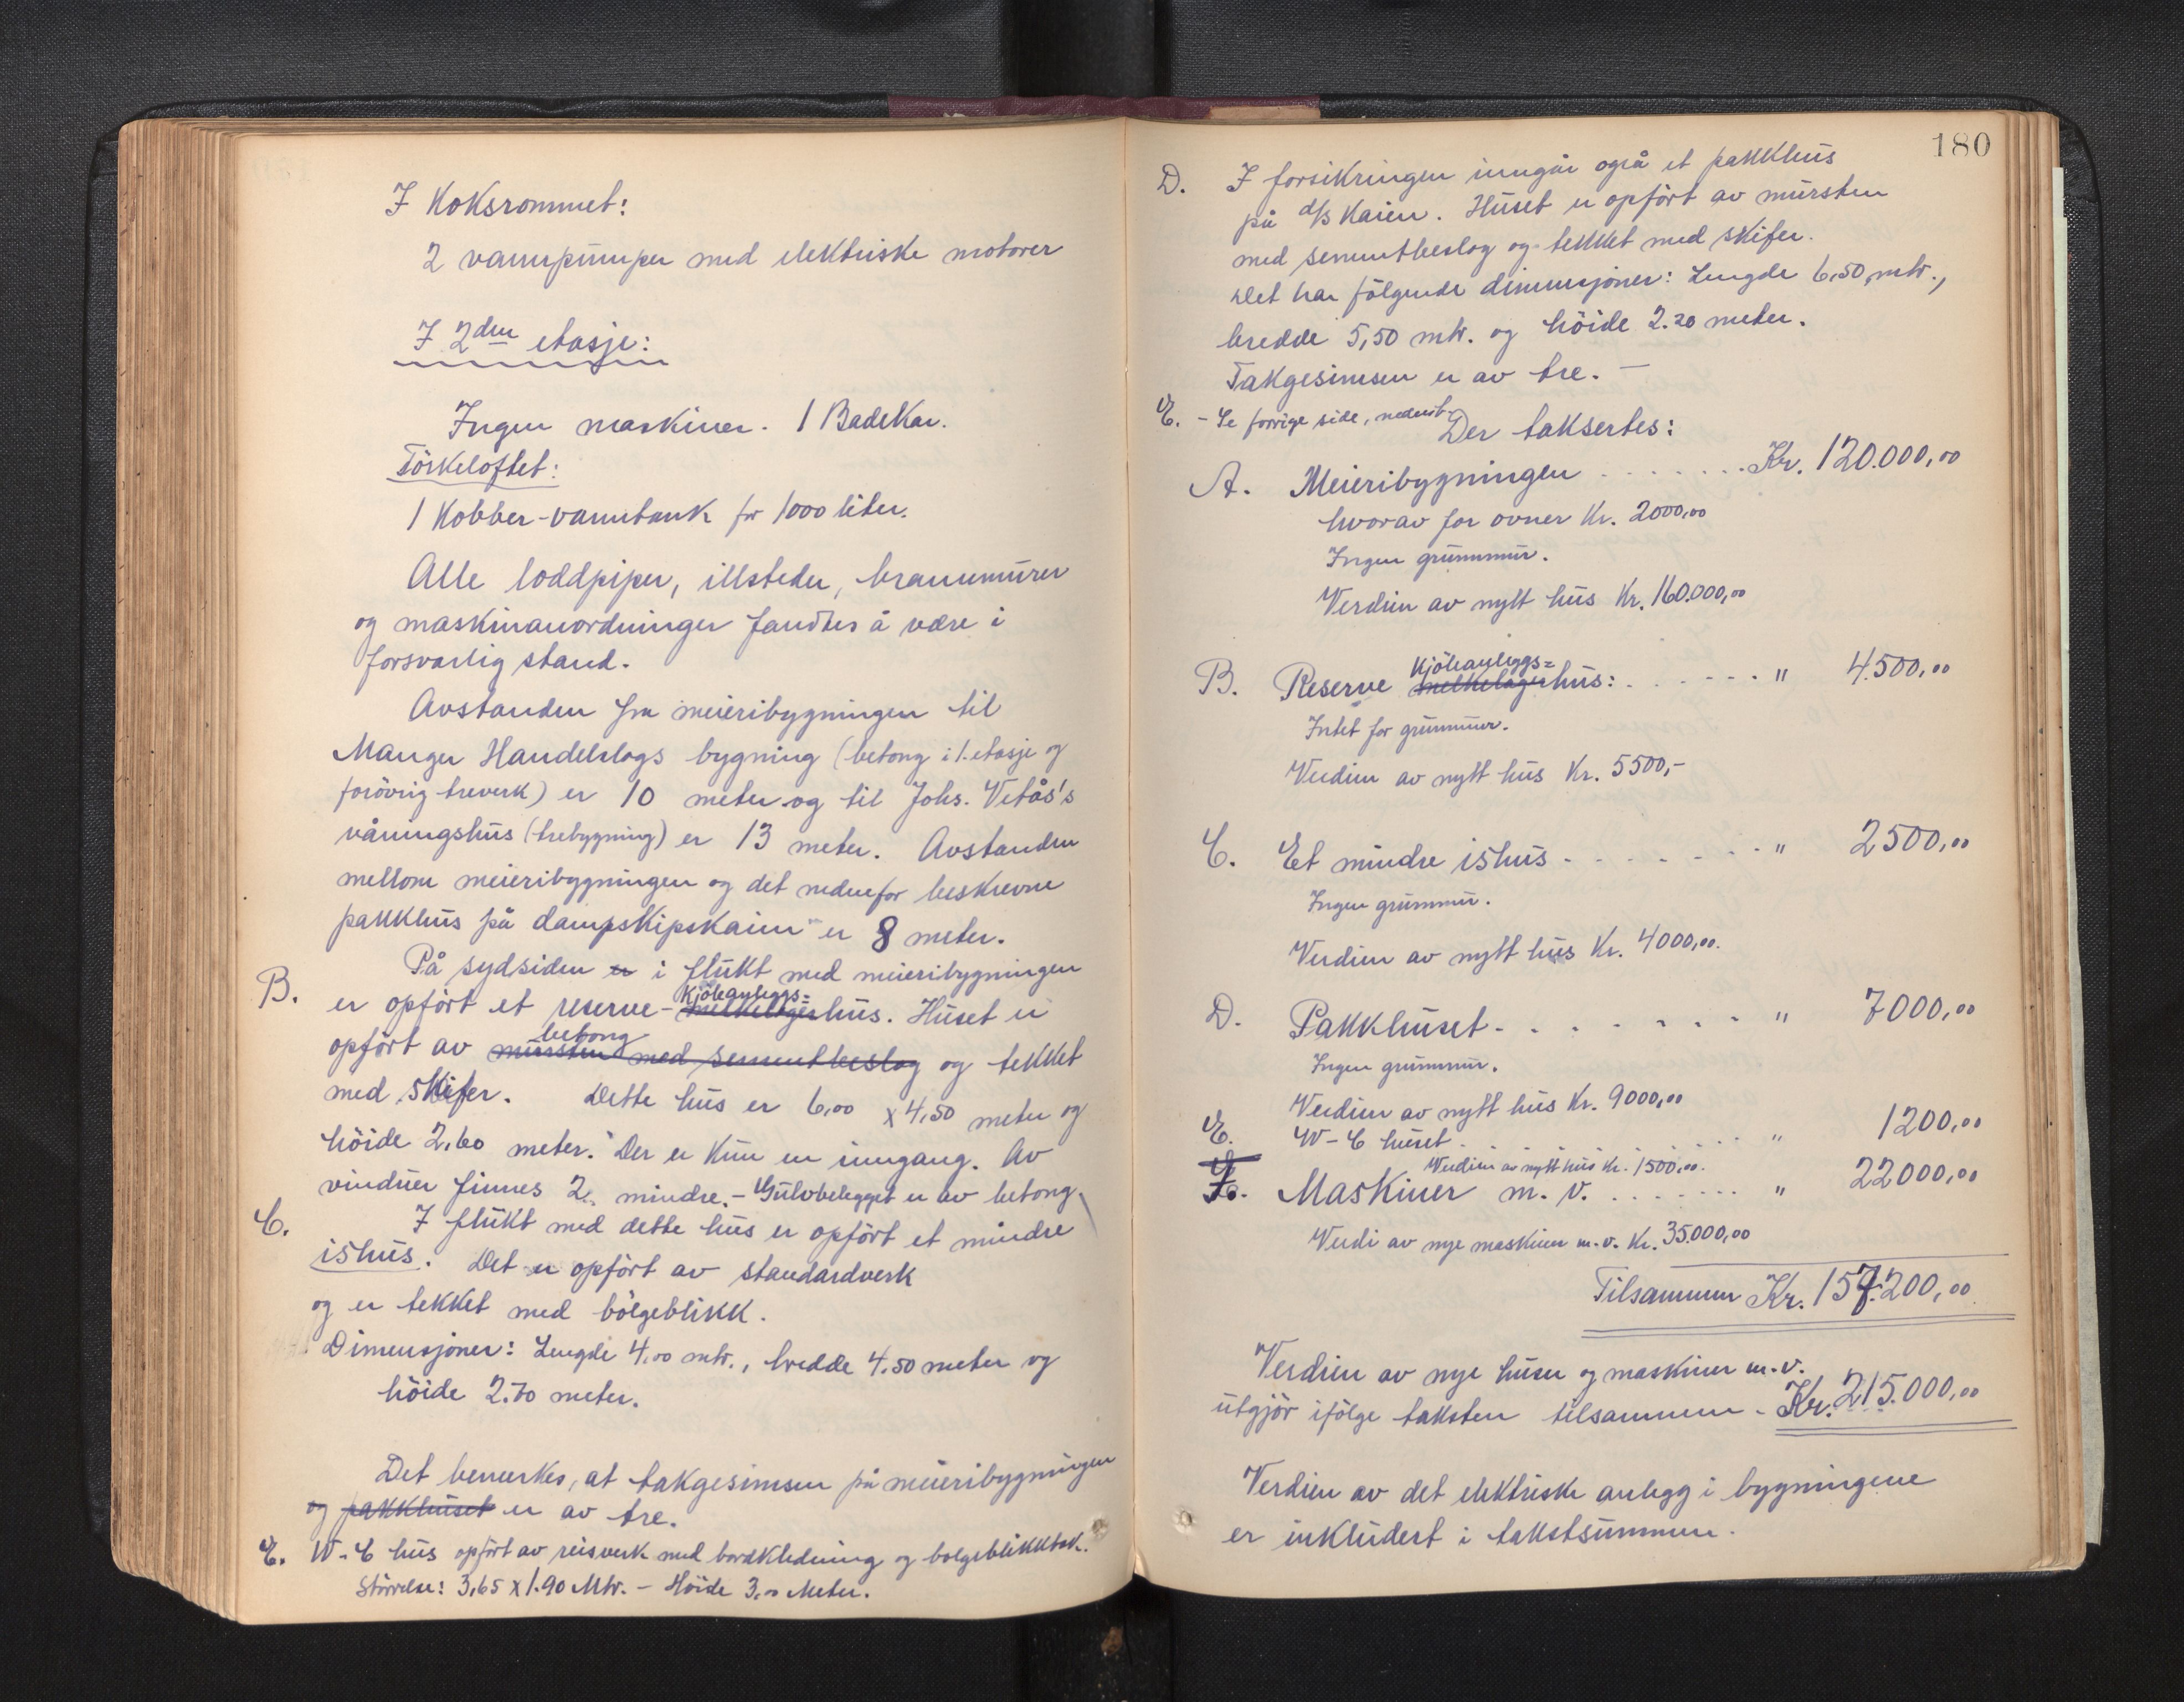 I Koksrommet:
2 vannpumper med elektriske motorer
I 2den etasje:
Ingen maskiner. 1 Badekar.
Törkeloftet:
1 Kobber-vanntank for 1000 liter.
Alle loddpiper, illsteder, brannmurer
og maskinanordninger fandtes å være i
forsvarlig stand.
Avstanden fra meieribygningen til
Manger Handelslags bygning (betong i 1. etasje og
forövrig treverk) er 10 meter og til Johs. Vetås's
våningshus (trebygning) er 13 meter. Avstanden
mellom meieribygningen og det nedenfor beskrevne
pakkhus på dampskipskaien er 8 meter.
B. På sydsiden er i flukt med meieribygningen
Kjöleanleggs=
er opfört et reserve-melkelagerhus. Huset er
betong
opfört av mursten med sementbeslag og tekket
med skifer. Dette hus er 6,00 x 4,50 meter og
höide 2,60 meter. Der er kun en inngang. Av
vinduer finnes 2 mindre. - Gulvbelegget er av betong.
C. I flukt med dette hus er opfört et mindre
ishus. Det er opfört av standardverk
og er tekket med bölgeblikk.
Dimensjoner: Lengde 4,00 mtr., bredde 4,50 meter og
höide 2.70 meter.
Det bemerkes, at takgesimsen på meieribygningen
og pakkhuset er av tre.
E. W-C hus opfört av reisverk med bordkledning og bolgeblikktak.
Störrelse: 3,65 x 1.90 Mtr. - Höide 3,00 Meter.
180
D. I forsikringen inngår også et pakkhus
på d/s Kaien. Huset er opfört av mursten
med sementbeslag og tekket med skifer.
Det har fölgende dimensjoner: Lengde 6,50 mtr.,
bredde 5,50 mtr. og höide 2.20 meter.
Takgesimsen er av tre. -
E. - Se forrige side, nederst-
Der taksertes:
A. Meieribygningen . . . . . . . Kr. 120.000,00
hvorav for ovner Kr. 2000,00
Ingen grunnmur.
Verdien av nytt hus Kr. 160.000,00
Kjöleanleggs=
B. Reserve melkelagerhus: . . . . . . " 4.500,00
Intet for grunnmur.
Verdien av nytt hus Kr. 5500,-
C. Et mindre ishus . . . . . . . " 2500,00
Ingen grunnmur.
Verdien av nytt hus Kr. 4000,00.
D. Pakkhuset . . . . . . . " 7000,00
Ingen grunnmur.
Verdien av nytt hus Kr. 9000,00
E. W-C huset . . . . . . . " 1200,00
Verdien av nytt hus Kr. 1500,00.
F. Maskiner m. v. . . . . . . . " 22000,00
Verdi av nye maskiner m.v. Kr. 35.000,00
Tilsammen Kr. 157.200,00
Verdien av nye huser og maskiner m.v.
utgjör ifölge taksten tilsammen - Kr. 215.000,00
Verdien av det elektriske anlegg i bygningene
er inkludert i takstsummen.